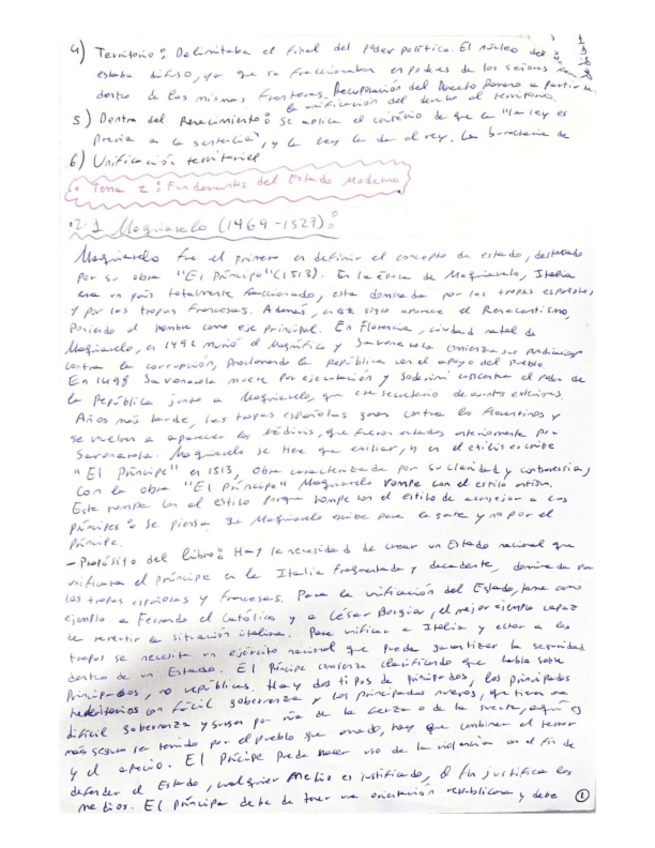 4) Territorio: Delimitaba el final del poder político. El núcleo del
estaba difuso, ya que se fraccionaba en poderes de los señores
dentro de las mismas fronteras. Recuperación del Derecho Romano a partir de
la unificación del derecho al territorio.
5) Dentro del Renacimiento: se aplica el criterio de que la "la ley es
previa a la sentencia", y la ley la da el rey. La burocracia de
6) Unificación territorial
• Tema 2: Fundamentos del Estado Moderno
•2.1 Maquiavelo (1469-1527):
Maquiavelo fue el primero en definir el concepto de estado, destacado
por su obra "El Príncipe" (1513). En la época de Maquiavelo, Italia
era un país totalmente fraccionado, esta dominada por las tropas españolas
y por las tropas francesas. Además, en este siglo aparece el Renacentismo,
poniendo al hombre como eje principal. En Florencia, ciudad natal de
Maquiavelo, en 1492 murió el Magnífico y Savonarola comienza sus
contra la corrupción, proclamando la república con el apoyo del pueblo.
En 1498 Savonarola muere por ejecución y Soderini concentra el poder de
la República junto a Maquiavelo, que era secretario de asuntos exteriores.
Años más tarde, las tropas españolas ganan contra los florentinos y
se vuelven a aparecer los Médicis, que fueron echados anteriormente por
Savonarola. Maquiavelo se tiene que exiliar, y en el exilio escribe
"El Príncipe" en 1513, obra caracterizada por su claridad y controversia,
con la obra "El Príncipe" Maquiavelo rompe con el estilo antiguo.
Este rompe con el estilo porque rompe con el estilo de aconsejar a los
príncipes: Se piensa que Maquiavelo escribe para la gente y no por el
Príncipe.
– Propósito del libro: Hay la necesidad de crear un Estado nacional que
unificara el príncipe en la Italia fragmentada y decadente, dominada por
las tropas españolas y francesas. Para la unificación del Estado, toma como
ejemplo a Fernando el Católico y a César Borgia, el mejor ejemplo capaz
de revertir la situación italiana. Para unificar a Italia y echar a las
tropas se necesita un ejército nacional que pueda garantizar la seguridad
dentro de un Estado. El Príncipe comienza clarificando que habla sobre
Principados, no repúblicas. Hay dos tipos de principados, los principados
hereditarios con fácil gobernanza y los principados nuevos, que tienen una
difícil gobernanza y surgen por vía de la fuerza o de la suerte, aquí es
más seguro ser temido por el pueblo que amado, hay que combinar el temor
y el aprecio. El Príncipe puede hacer uso de la violencia con el fin de
defender el Estado, cualquier medio es justificado, el fin justifica los
medios. El príncipe debe de tener una orientación republicana y debe
①